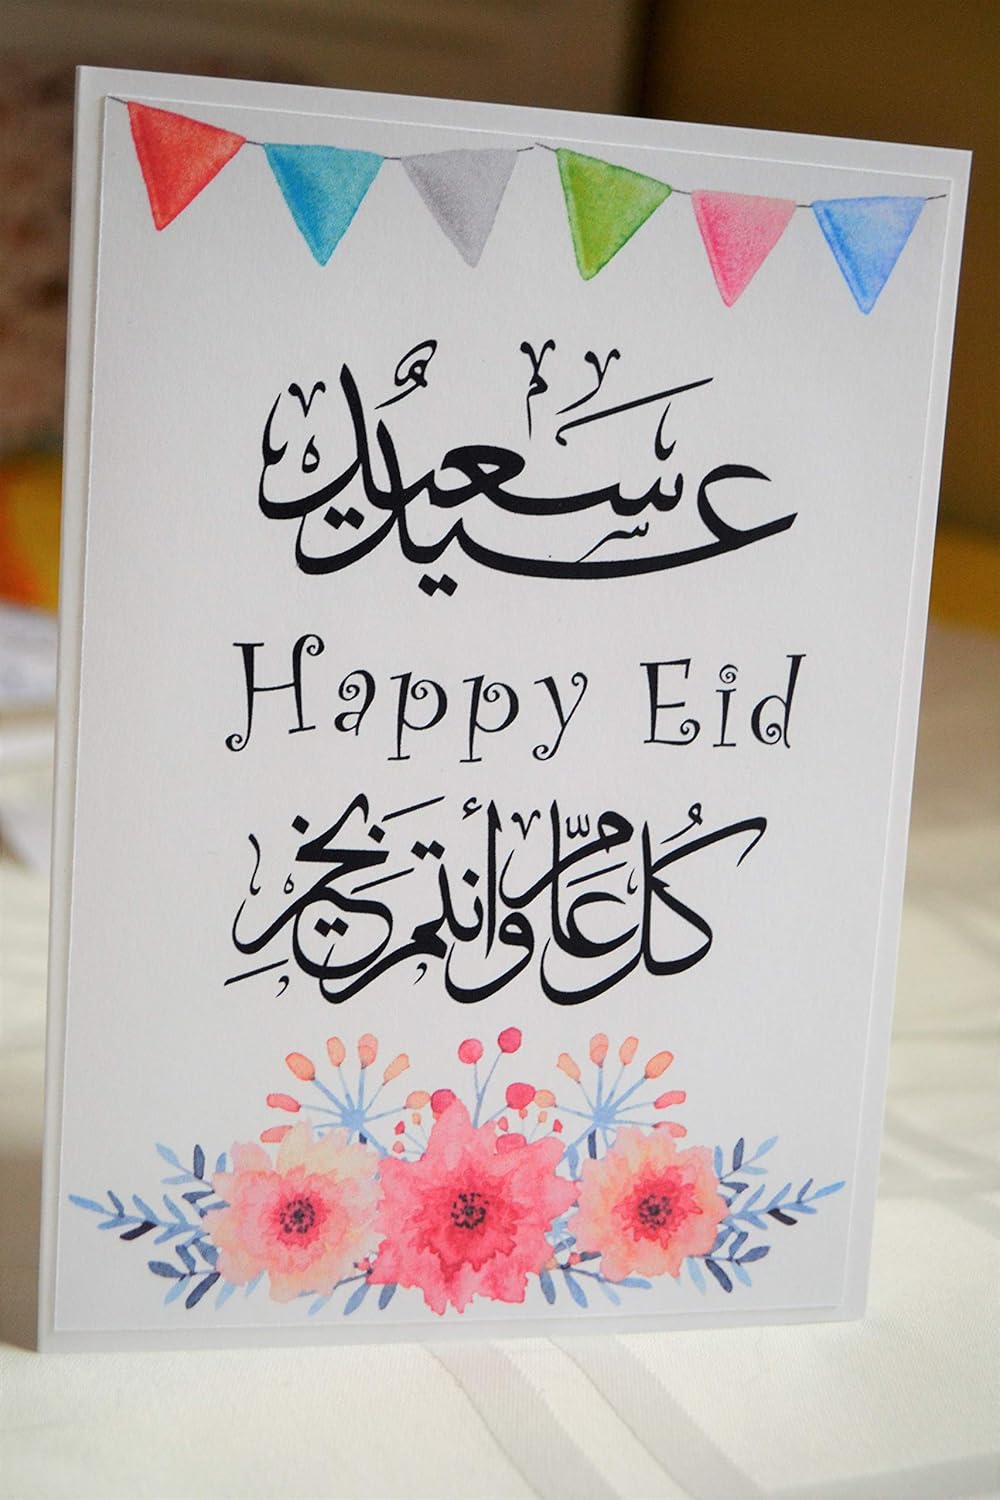 عيدٌ سَعيد
Happy Eid
كُل عَامّ وأنتم بَخيرِ